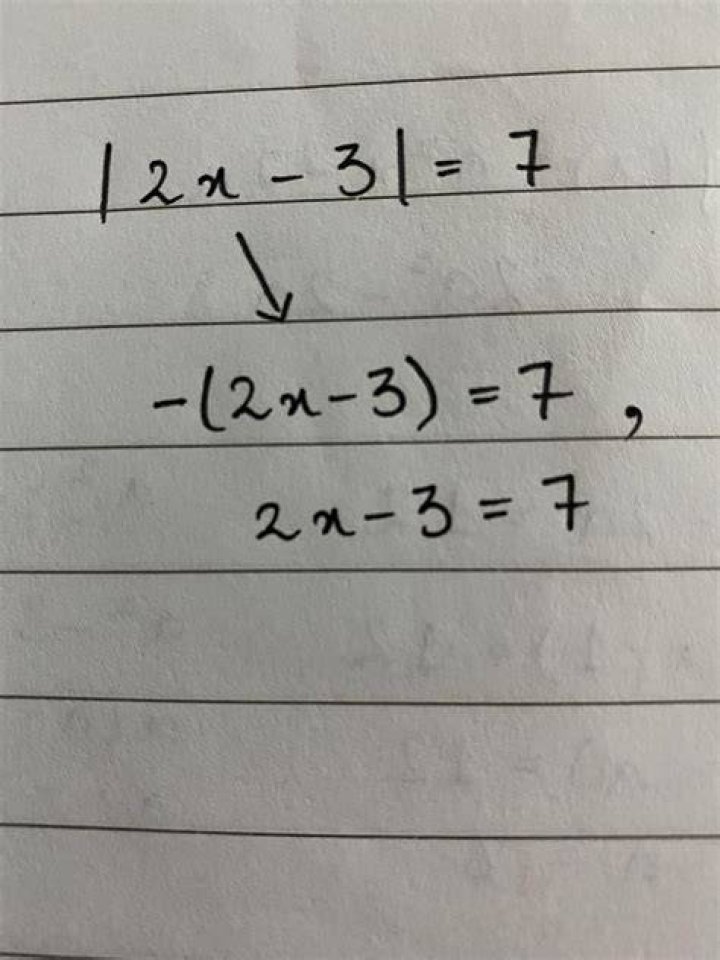 |2x - 3| = 7
-(2x - 3) = 7 ,
2x - 3 = 7